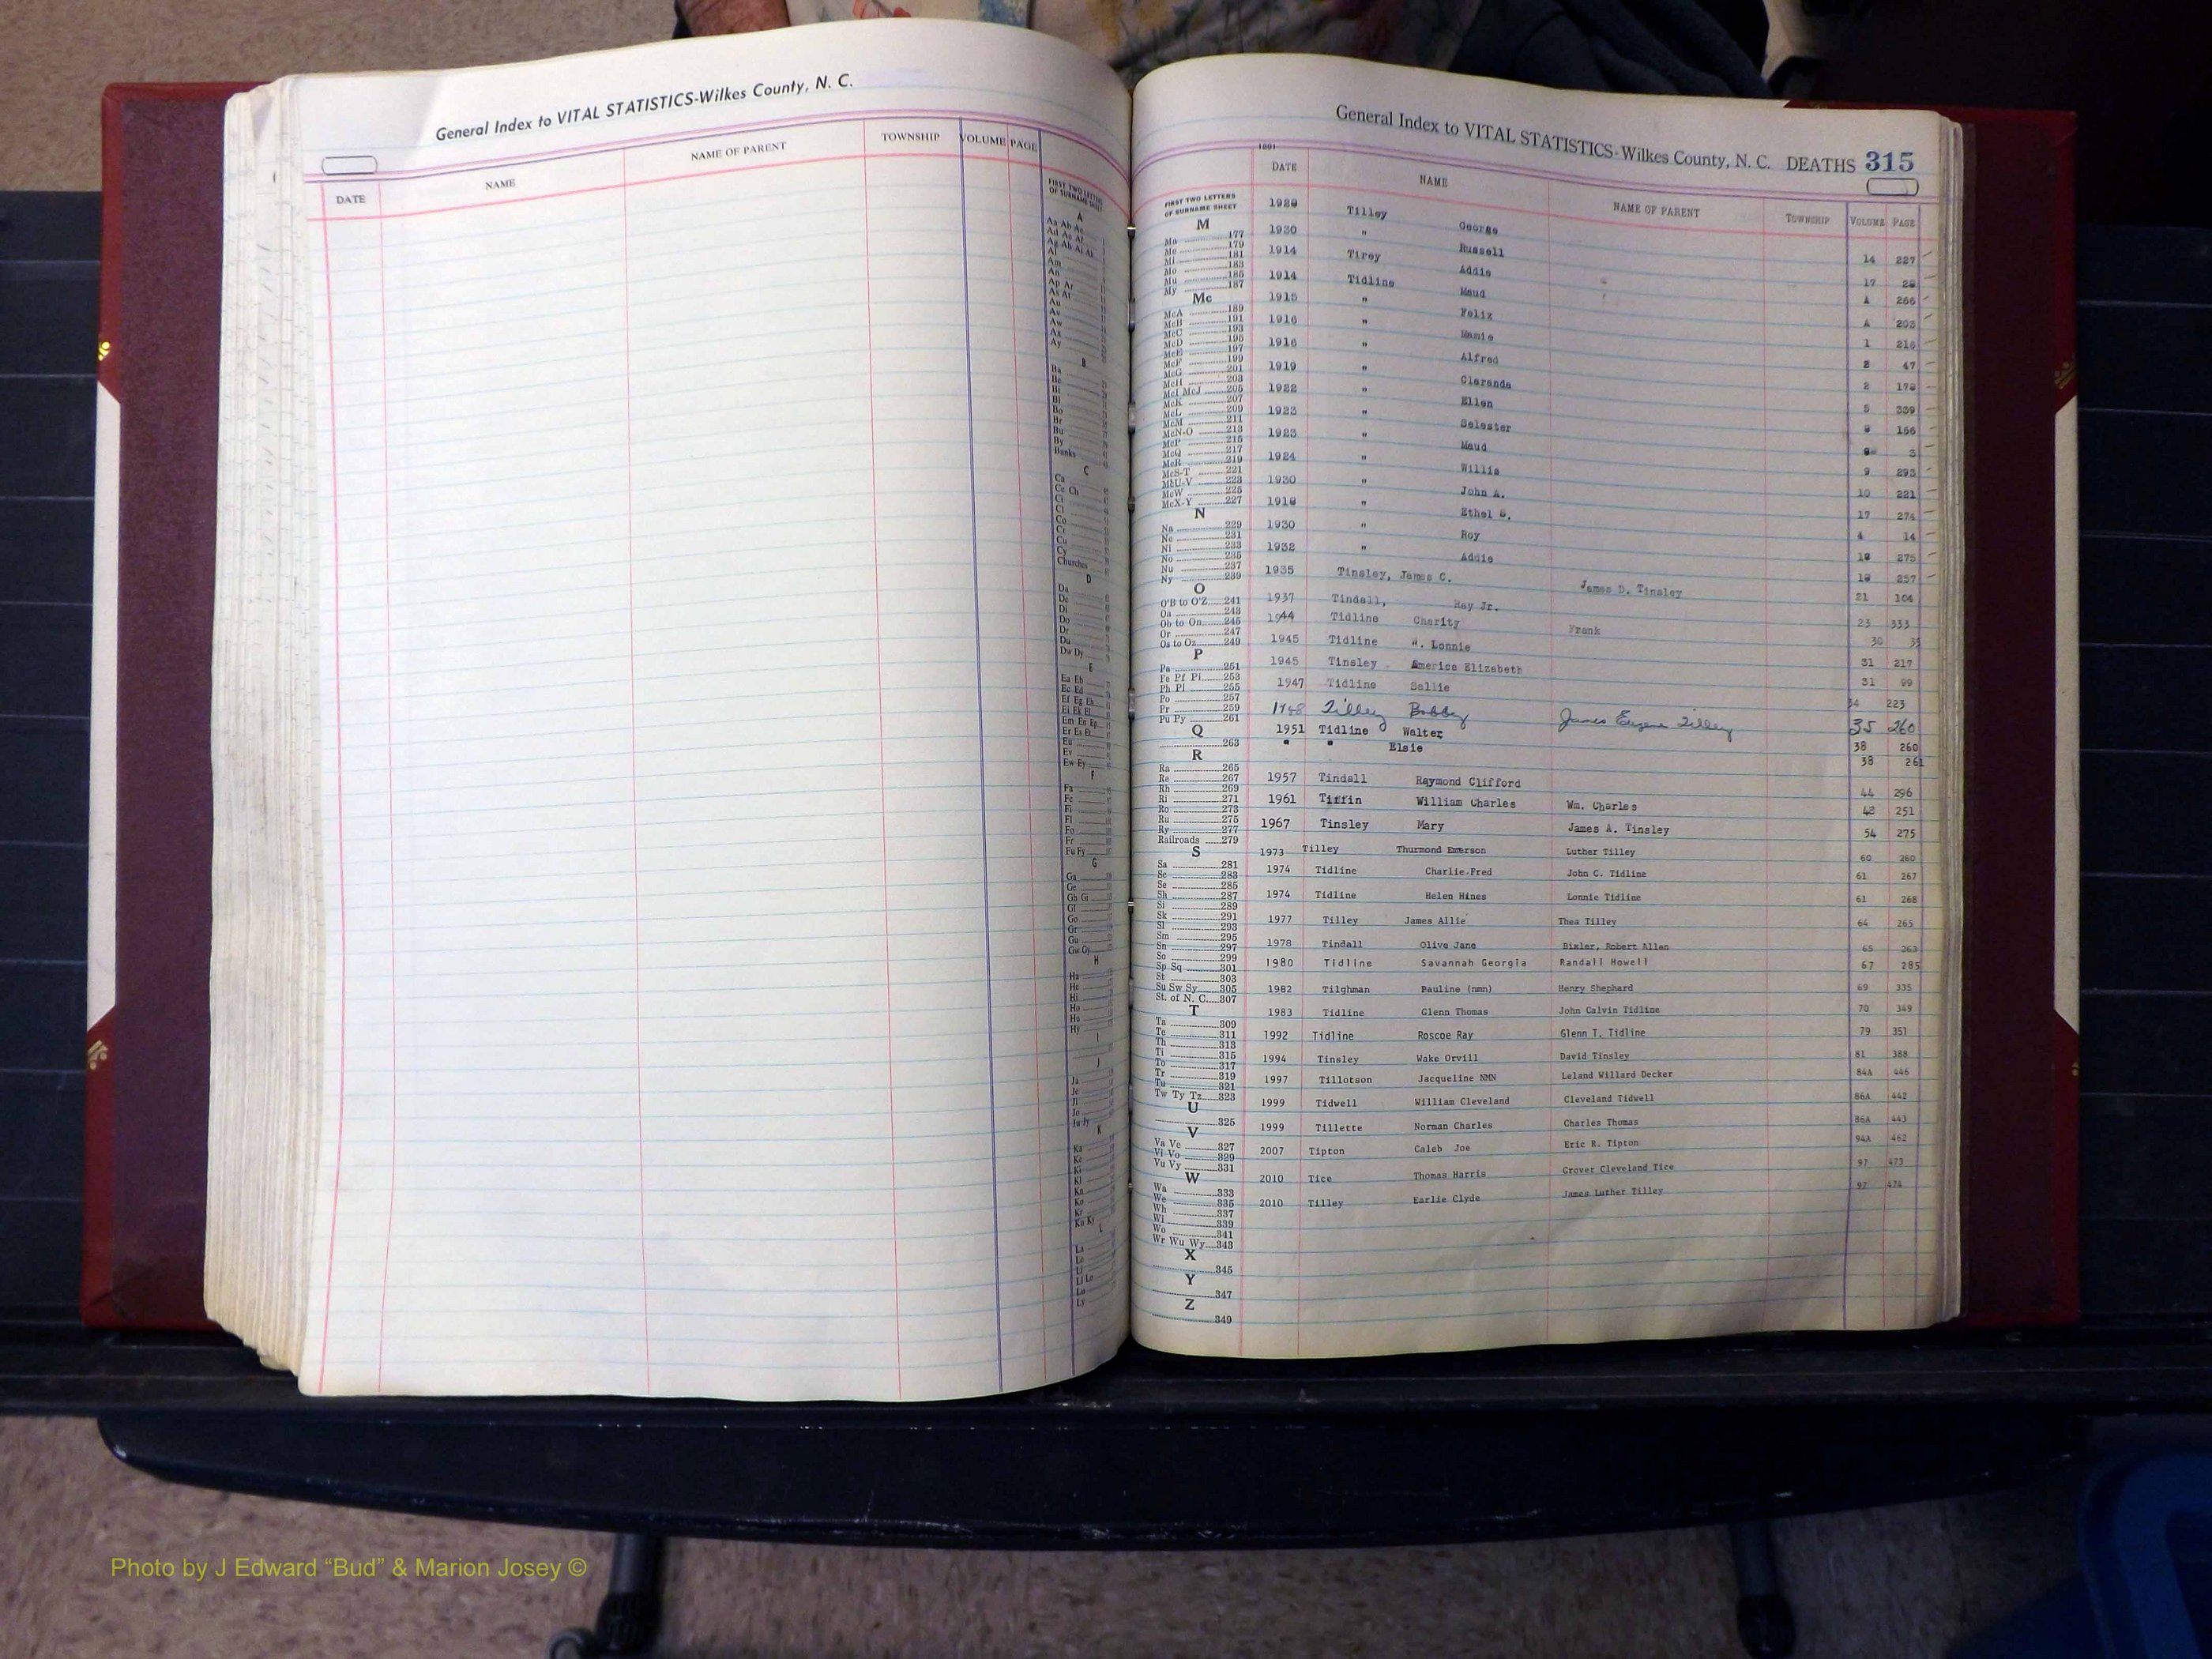 General Index to VITAL STATISTICS-Wilkes County, N. C.
DATE NAME NAME OF PARENT TOWNSHIP VOLUME PAGE
FIRST TWO LETTERS
OF SURNAME SHEET
A
Aa Ab Ac
Al
Am
An
Ap Ar
Au
Av
Aw
Ax
Ay
B
Ba
Be
Bi
Bl
Bo
Br
Bu
By
Banks
C
Ca
Ce Ch
Ci
Cl
Co
Cr
Cu
Cy
Churches
D
Da
De
Di
Do
Dr
Du
Dw Dy
E
Ea Eb
Ec Ed
Ef Eg Eh
Ei Ek El
Em En Ep
Er Es Et
Eu
Ev
Ew Ey
F
Fa
Fe
Fi
Fl
Fo
Fr
Fu Fy
G
Ga
Ge
Gh Gi
Gl
Go
Gr
Gu
Gw Gy
H
Ha
He
Hi
Ho
Hu
Hy
I
J
Ja
Je
Ji
Jo
Ju Jy
K
Ka
Ke
Ki
Kl
Kn
Ko
Kr
Ku Ky
L
La
Le
Li
Ll Lo
Lu
Ly
General Index to VITAL STATISTICS-Wilkes County, N. C. DEATHS 315
DATE NAME NAME OF PARENT TOWNSHIP VOLUME PAGE
FIRST TWO LETTERS
OF SURNAME SHEET
M
Ma 177
Me 179
Mi 181
Mo 183
Mu 185
My 187
Mc
McA 189
McB 191
McC 193
McD 195
McE 197
McF 199
McG 201
McH 203
McI McJ 205
McK 207
McL 209
McM 211
McN-O 213
McP 215
McQ 217
McR 219
McS-T 221
McU-V 223
McW 225
McX-Y 227
N
Na 229
Ne 231
Ni 233
No 235
Nu 237
Ny 239
O
O'B to O'Z 241
Oa 243
Ob to On 245
Or 247
Os to Oz 249
P
Pa 251
Pe Pf Pi 253
Ph Pl 255
Po 257
Pr 259
Pu Py 261
Q
263
R
Ra 265
Re 267
Rh 269
Ri 271
Ro 273
Ru 275
Ry 277
Railroads 279
S
Sa 281
Sc 283
Se 285
Sh 287
Si 289
Sk 291
Sl 293
Sm 295
Sn 297
So 299
Sp Sq 301
St 303
Su Sw Sy 305
St. of N. C. 307
T
Ta 309
Te 311
Th 313
Ti 315
To 317
Tr 319
Tu 321
Tw Ty Tz 323
U
325
V
Va Ve 327
Vi Vo 329
Vu Vy 331
W
Wa 333
We 335
Wh 337
Wi 339
Wo 341
Wr Wu Wy 343
X
345
Y
347
Z
349
Tilley George 14 227
1930 " Russell 17 28
1914 Tirey Addie A 266
1914 Tidline Maud A 203
1915 " Felix 1 216
1916 " Mamie 2 47
1916 " Alfred 2 178
1919 " Claranda 5 339
1922 " Ellen 166
1923 " Selester 3
1923 " Maud 9 293
1924 " Willis 10 221
1930 " John A. 17 274
" Ethel 4 14
1930 " Roy 275
1932 " Addie 257
1935 Tinsley, James C. James D. Tinsley 21 104
1937 Tindall, Ray Jr. Frank 23 333
1944 Tidline Charity 30
1945 Tidline W. Lonnie 31 217
1945 Tinsley America Elizabeth 31 99
1947 Tidline Sallie 34 223
1948 Tilley Bobby James Eugene Tilley 35 260
1951 Tidline Walter 38 260
" " Elsie 38 261
1957 Tindall Raymond Clifford 44 296
1961 Tiffin William Charles Wm. Charles 48 251
1967 Tinsley Mary James A. Tinsley 54 275
1973 Tilley Thurmond Emerson Luther Tilley 60 260
1974 Tidline Charlie Fred John C. Tidline 61 267
1974 Tidline Helen Hines Lonnie Tidline 61 268
1977 Tilley James Allie Thea Tilley 64 265
1978 Tindall Olive Jane Bixler, Robert Allen 65 263
1980 Tidline Savannah Georgia Randall Howell 67 285
1982 Tilghman Pauline (nmn) Henry Shephard 69 335
1983 Tidline Glenn Thomas John Calvin Tidline 70 349
1992 Tidline Roscoe Ray Glenn T. Tidline 79 351
1994 Tinsley Wake Orvill David Tinsley 81 388
1997 Tillotson Jacqueline NMN Leland Willard Decker 84A 446
1999 Tidwell William Cleveland Cleveland Tidwell 86A 442
1999 Tillette Norman Charles Charles Thomas 86A 443
2007 Tipton Caleb Joe Eric R. Tipton 94A 462
2010 Tice Thomas Harris Grover Cleveland Tice 97 473
2010 Tilley Earlie Clyde James Luther Tilley 97 474
Photo by J Edward “Bud” & Marion Josey ©